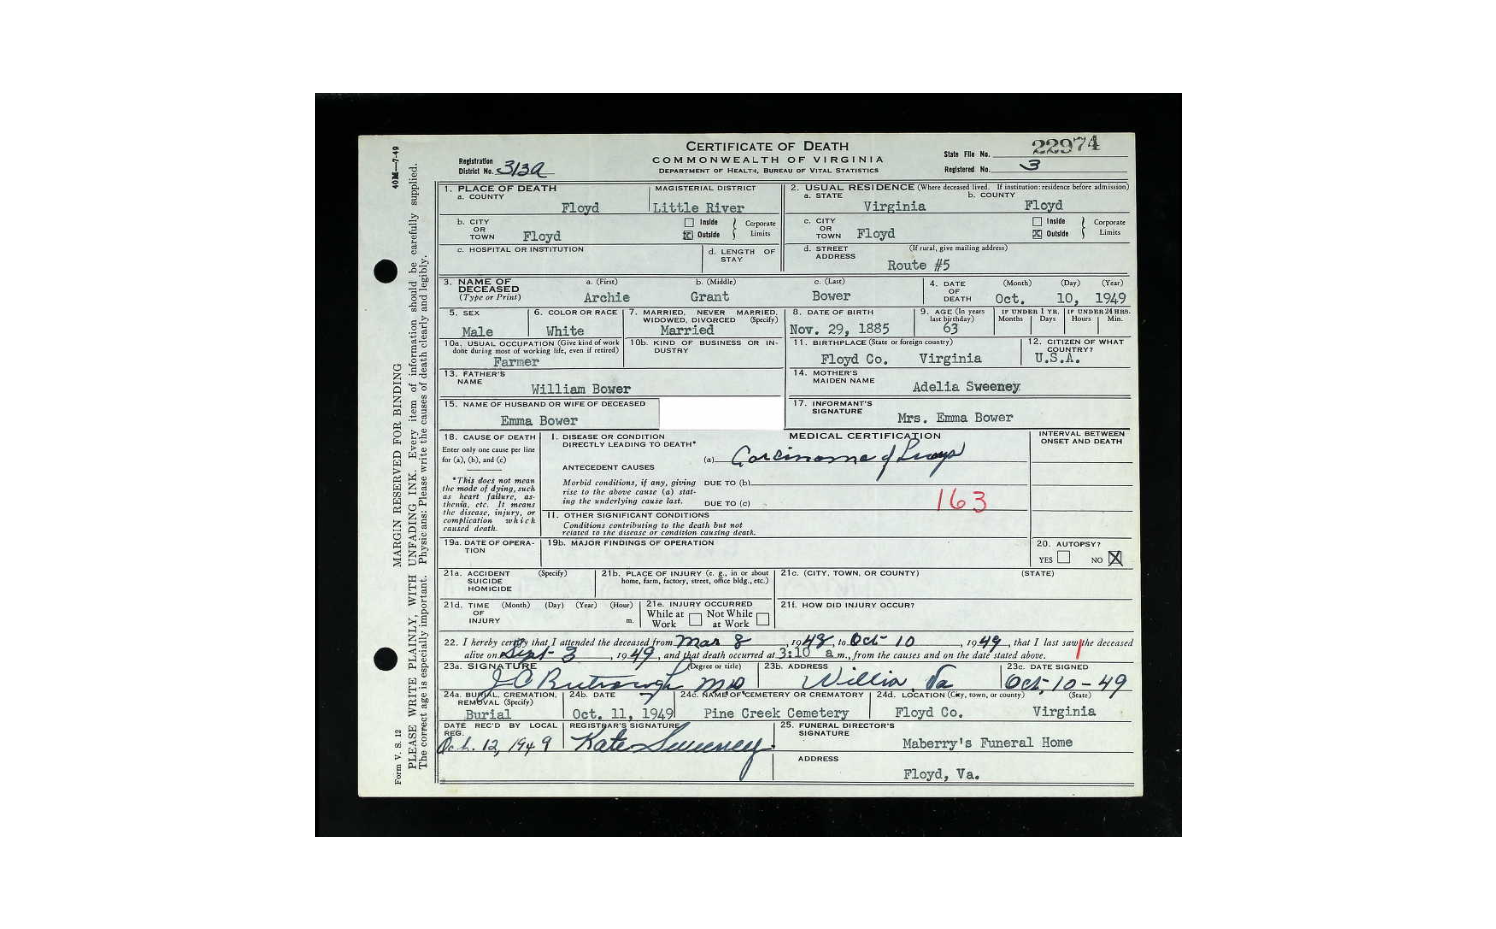 CERTIFICATE OF DEATH
COMMONWEALTH OF VIRGINIA
DEPARTMENT OF HEALTH, BUREAU OF VITAL STATISTICS
Registration District No. 313a
State File No. 22974
Registered No. 3
40M—7-49
MARGIN RESERVED FOR BINDING
PLEASE WRITE PLAINLY, WITH UNFADING INK. Every item of information should be carefully supplied.
The correct age is especially important. Physicians: Please write the causes of death clearly and legibly.
Form V. S. 12
1. PLACE OF DEATH
a. COUNTY Floyd
MAGISTERIAL DISTRICT Little River
2. USUAL RESIDENCE (Where deceased lived. If institution: residence before admission)
a. STATE Virginia
b. COUNTY Floyd
b. CITY OR TOWN Floyd
Inside
Outside
Corporate Limits
c. CITY OR TOWN Floyd
Inside
Outside
Corporate Limits
c. HOSPITAL OR INSTITUTION
d. LENGTH OF STAY
d. STREET ADDRESS (If rural, give mailing address)
Route #5
3. NAME OF DECEASED (Type or Print)
a. (First) Archie
b. (Middle) Grant
c. (Last) Bower
4. DATE OF DEATH (Month) (Day) (Year)
Oct. 10, 1949
5. SEX Male
6. COLOR OR RACE White
7. MARRIED, NEVER MARRIED, WIDOWED, DIVORCED (Specify) Married
8. DATE OF BIRTH Nov. 29, 1885
9. AGE (In years last birthday) 63
IF UNDER 1 YR. Months Days
IF UNDER 24 HRS. Hours Min.
10a. USUAL OCCUPATION (Give kind of work done during most of working life, even if retired) Farmer
10b. KIND OF BUSINESS OR INDUSTRY
11. BIRTHPLACE (State or foreign country) Floyd Co. Virginia
12. CITIZEN OF WHAT COUNTRY? U.S.A.
13. FATHER'S NAME William Bower
14. MOTHER'S MAIDEN NAME Adelia Sweeney
15. NAME OF HUSBAND OR WIFE OF DECEASED Emma Bower
17. INFORMANT'S SIGNATURE Mrs. Emma Bower
18. CAUSE OF DEATH
Enter only one cause per line for (a), (b), and (c)
*This does not mean the mode of dying, such as heart failure, asthenia, etc. It means the disease, injury, or complication which caused death.
MEDICAL CERTIFICATION
INTERVAL BETWEEN ONSET AND DEATH
I. DISEASE OR CONDITION DIRECTLY LEADING TO DEATH*
(a) Carcinoma of Lungs
ANTECEDENT CAUSES
Morbid conditions, if any, giving rise to the above cause (a) stating the underlying cause last.
DUE TO (b)
DUE TO (c)
163
II. OTHER SIGNIFICANT CONDITIONS
Conditions contributing to the death but not related to the disease or condition causing death.
19a. DATE OF OPERATION
19b. MAJOR FINDINGS OF OPERATION
20. AUTOPSY?
YES NO
21a. ACCIDENT SUICIDE HOMICIDE (Specify)
21b. PLACE OF INJURY (e. g., in or about home, farm, factory, street, office bldg., etc.)
21c. (CITY, TOWN, OR COUNTY) (STATE)
21d. TIME OF INJURY (Month) (Day) (Year) (Hour) m.
21e. INJURY OCCURRED
While at Work
Not While at Work
21f. HOW DID INJURY OCCUR?
22. I hereby certify that I attended the deceased from Mar 8, 1948, to Oct 10 1949, that I last saw the deceased
alive on Sept 3, 1949, and that death occurred at 3:10 a m., from the causes and on the date stated above.
23a. SIGNATURE (Degree or title) MD
23b. ADDRESS Willis, Va
23c. DATE SIGNED Oct, 10-49
24a. BURIAL, CREMATION, REMOVAL (Specify) Burial
24b. DATE Oct. 11, 1949
24c. NAME OF CEMETERY OR CREMATORY Pine Creek Cemetery
24d. LOCATION (City, town, or county) (State)
Floyd Co. Virginia
DATE REC'D BY LOCAL REG. Oct. 12, 1949
REGISTRAR'S SIGNATURE Kate Sweeney
25. FUNERAL DIRECTOR'S SIGNATURE Maberry's Funeral Home
ADDRESS
Floyd, Va.